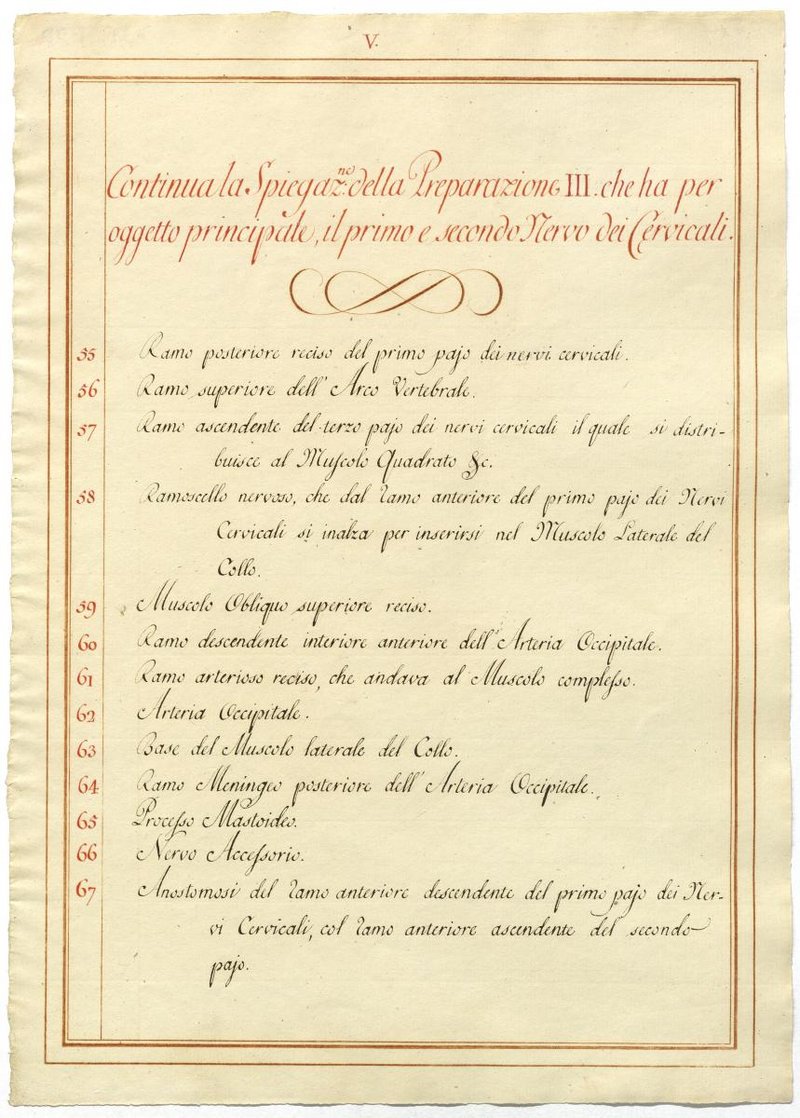 V.
Continua la Spiegaz.ne della Preparazione III. che ha per
oggetto principale, il primo e secondo Nervo dei Cervicali.
55 Ramo posteriore reciso del primo pajo dei nervi cervicali.
56 Ramo superiore dell' Arco Vertebrale.
57 Ramo ascendente del terzo pajo dei nervi cervicali il quale si distri-
buisce al Muſcolo Quadrato &c.
58 Ramoscello nervoso, che dal ramo anteriore del primo pajo dei Nervi
Cervicali si inalza per inserirsi nel Muscolo Laterale del
Collo.
59 Muscolo Obliquo superiore reciso.
60 Ramo descendente interiore anteriore dell' Arteria Occipitale.
61 Ramo arterioso reciso, che andava al Muscolo compleſso.
62 Arteria Occipitale.
63 Base del Muscolo laterale del Collo.
64 Ramo Meningeo posteriore dell' Arteria Occipitale.
65 Proceſso Mastoideo.
66 Nervo Acceſsorio.
67 Anostomosi del ramo anteriore descendente del primo pajo dei Ner-
vi Cervicali, col ramo anteriore ascendente del secondo
pajo.